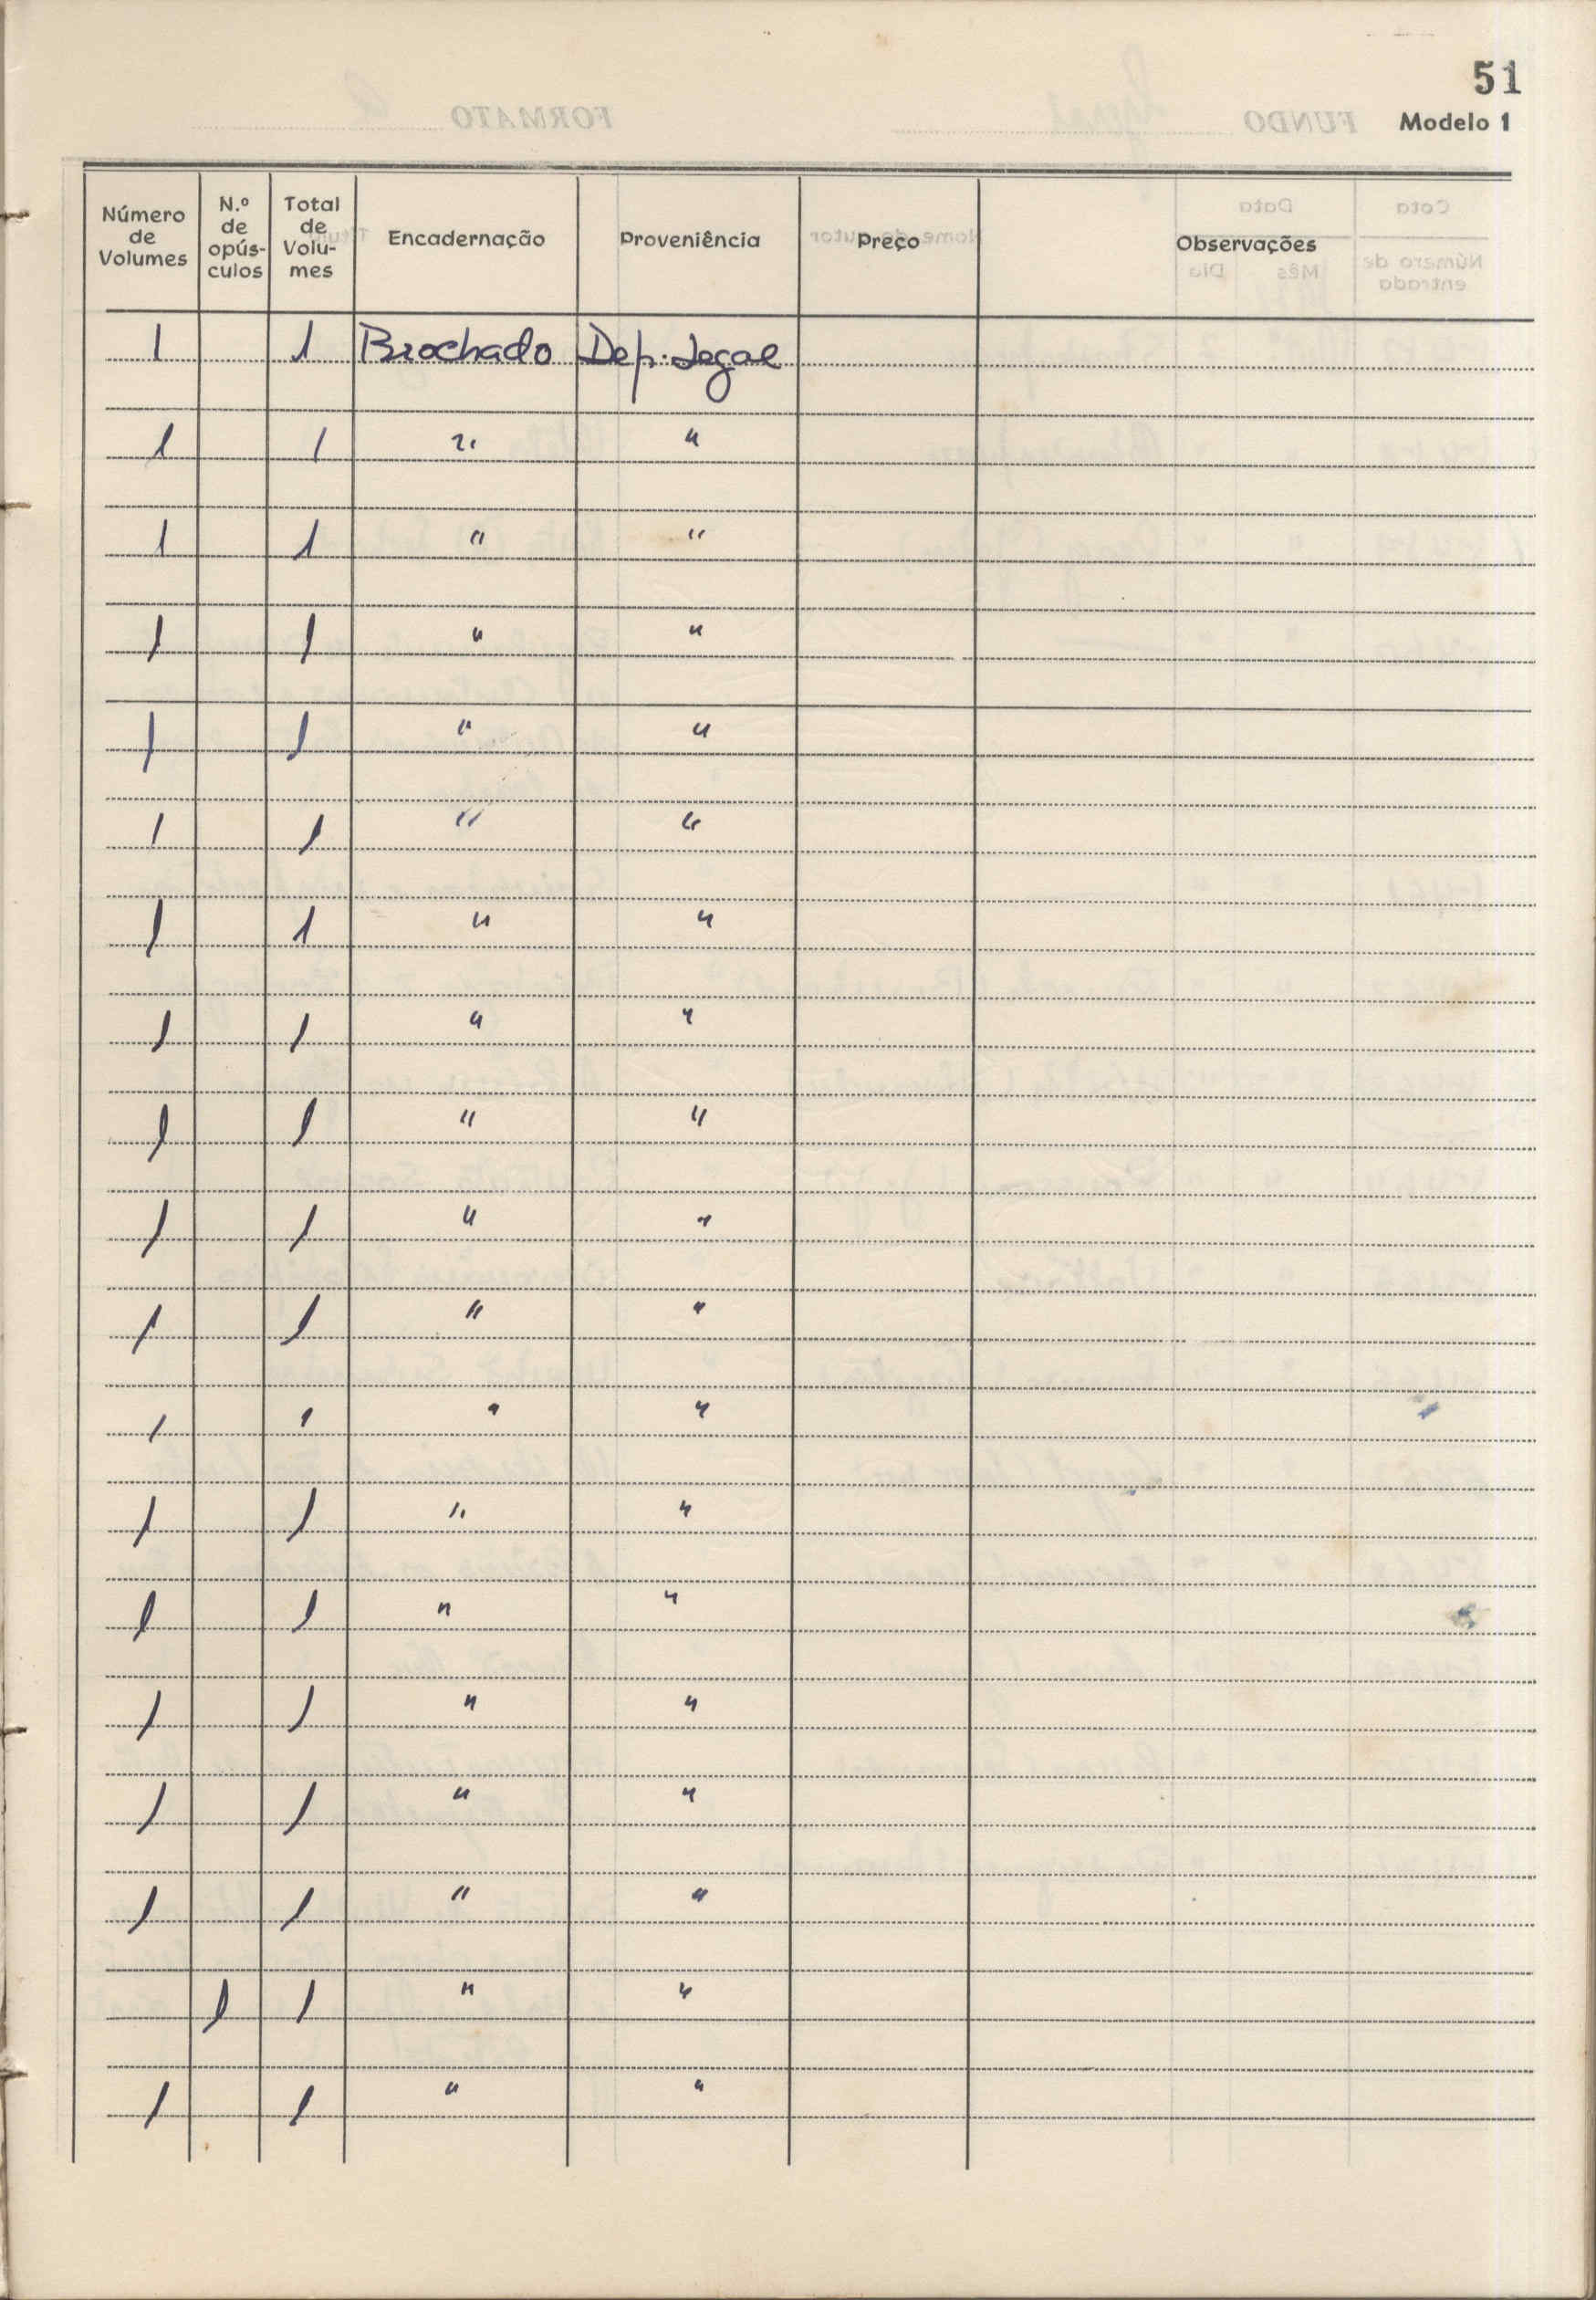 51
Modelo 1
Número de Volumes | N.º de opús-culos | Total de Volu-mes | Encadernação | Proveniência | Preço | Observações
1 | | 1 | Brochado | Dep. Legal
1 | | 1 | " | "
1 | | 1 | " | "
1 | | 1 | " | "
1 | | 1 | " | "
1 | | 1 | " | "
1 | | 1 | " | "
1 | | 1 | " | "
1 | | 1 | " | "
1 | | 1 | " | "
1 | | 1 | " | "
1 | | 1 | " | "
1 | | 1 | " | "
1 | | 1 | " | "
1 | | 1 | " | "
1 | | 1 | " | "
1 | | 1 | " | "
| 1 | 1 | " | "
1 | | 1 | " | "